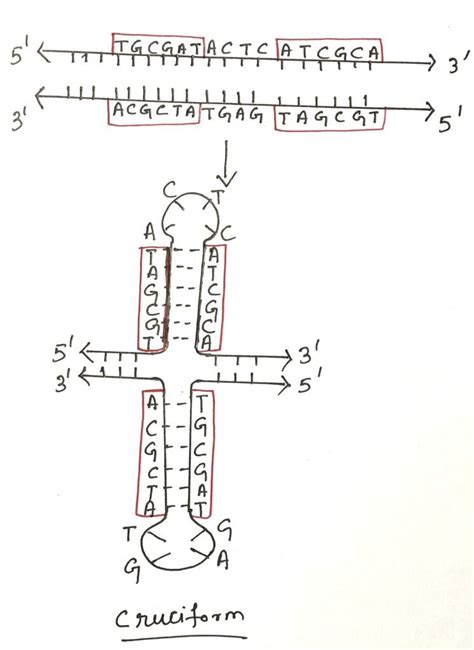 5' TGCGAT ACTC ATCGCA 3'
3' ACGCTA TGAG TAGCGT 5'
C T
A C
T A
A T
G C
C G
G C
T A
5' 3'
3' 5'
A T
C G
G C
C G
T A
A T
T G
G A
Cruciform